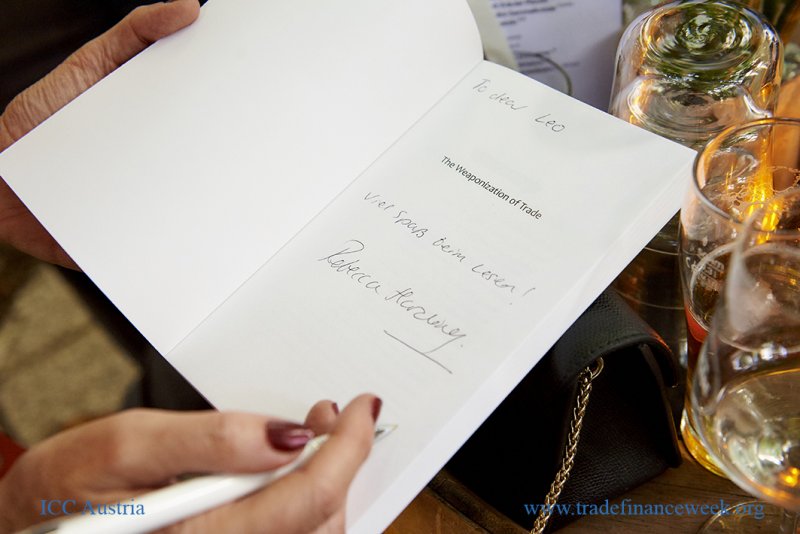 To dear Leo
The Weaponization of Trade
Viel Spaß beim Lesen!
Rebecca Harding
ICC Austria
www.tradefinanceweek.org